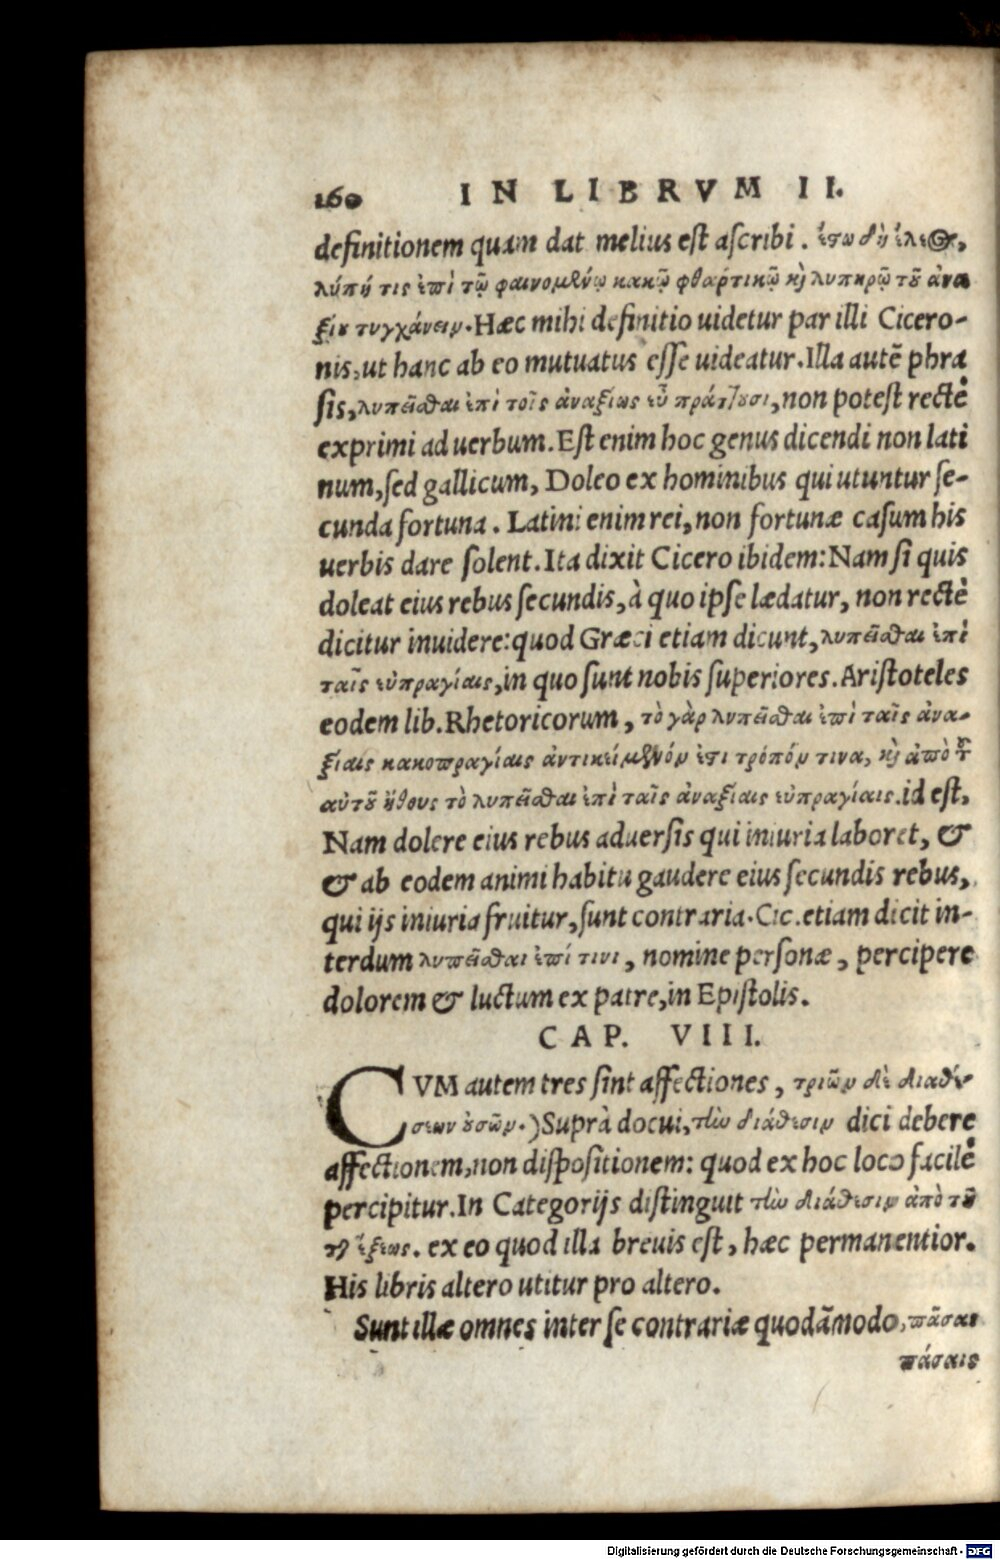 160 IN LIBRVM II.
definitionem quam dat melius est ascribi. ἔστω δὴ ἔλεος,
λύπη τις ἐπὶ τῷ φαινομένῳ κακῷ φθαρτικῷ κὶ λυπηρῷ τοῦ ἀνα
ξίου τυγχάνειν. Hæc mihi definitio uidetur par illi Cicero-
nis, ut hanc ab eo mutuatus esse uideatur. Illa autē phra
sis, λυπεῖσθαι ἐπὶ τοῖς ἀναξίως εὖ πράττουσι, non potest rectè
exprimi ad uerbum. Est enim hoc genus dicendi non lati
num, sed gallicum, Doleo ex hominibus qui utuntur se-
cunda fortuna. Latini enim rei, non fortunæ casum his
uerbis dare solent. Ita dixit Cicero ibidem: Nam si quis
doleat eius rebus secundis, à quo ipse lædatur, non rectè
dicitur inuidere: quod Græci etiam dicunt, λυπεῖσθαι ἐπὶ
ταῖς εὐπραγίαις, in quo sunt nobis superiores. Aristoteles
eodem lib. Rhetoricorum, τὸ γὰρ λυπεῖσθαι ἐπὶ ταῖς ἀνα-
ξίαις κακοπραγίαις ἀντικείμενόν ἐστι τρόπόν τινα, κὶ ἀπὸ τοῦ
αὐτοῦ ἤθους τὸ λυπεῖσθαι ἐπὶ ταῖς ἀναξίαις εὐπραγίαις. id est,
Nam dolere eius rebus aduersis qui iniuria laboret, &
& ab eodem animi habitu gaudere eius secundis rebus,
qui ijs iniuria fruitur, sunt contraria. Cic. etiam dicit in-
terdum λυπεῖσθαι ἐπί τινι, nomine personæ, percipere
dolorem & luctum ex patre, in Epistolis.
CAP. VIII.
CVM autem tres sint affectiones, τριῶν δὲ διαθέ-
σεων οὐσῶν.) Suprà docui, τὴν διάθεσιν dici debere
affectionem, non dispositionem: quod ex hoc loco facilè
percipitur. In Categorijs distinguit τὴν διάθεσιν ἀπὸ τοῦ
τῆς ἕξεως. ex eo quod illa breuis est, hæc permanentior.
His libris altero utitur pro altero.
Sunt illæ omnes inter se contrariæ quodāmodo, πᾶσαι
πάσαις
Digitalisierung gefördert durch die Deutsche Forschungsgemeinschaft - DFG